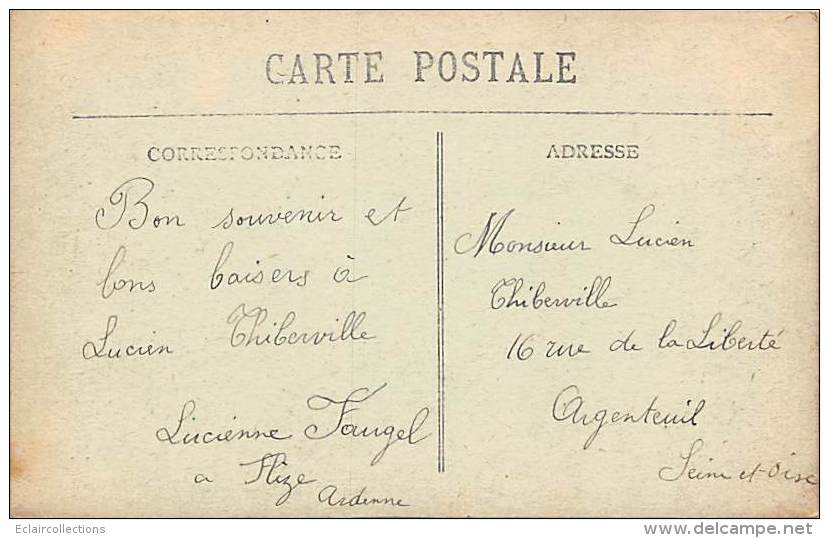 CARTE POSTALE
CORRESPONDANCE
Bon souvenir et
bons baisers à
Lucien Thiberville
Lucienne Faugel
a Flize
Ardenne
ADRESSE
Monsieur Lucien
Thiberville
16 rue de la Liberté
Argenteuil
Seine et Oise
Eclaircollections
www.delcampe.net